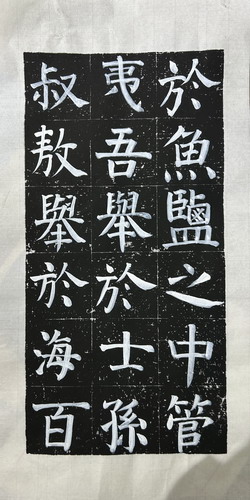 於魚鹽之中管
夷吾舉於士孫
叔敖舉於海百